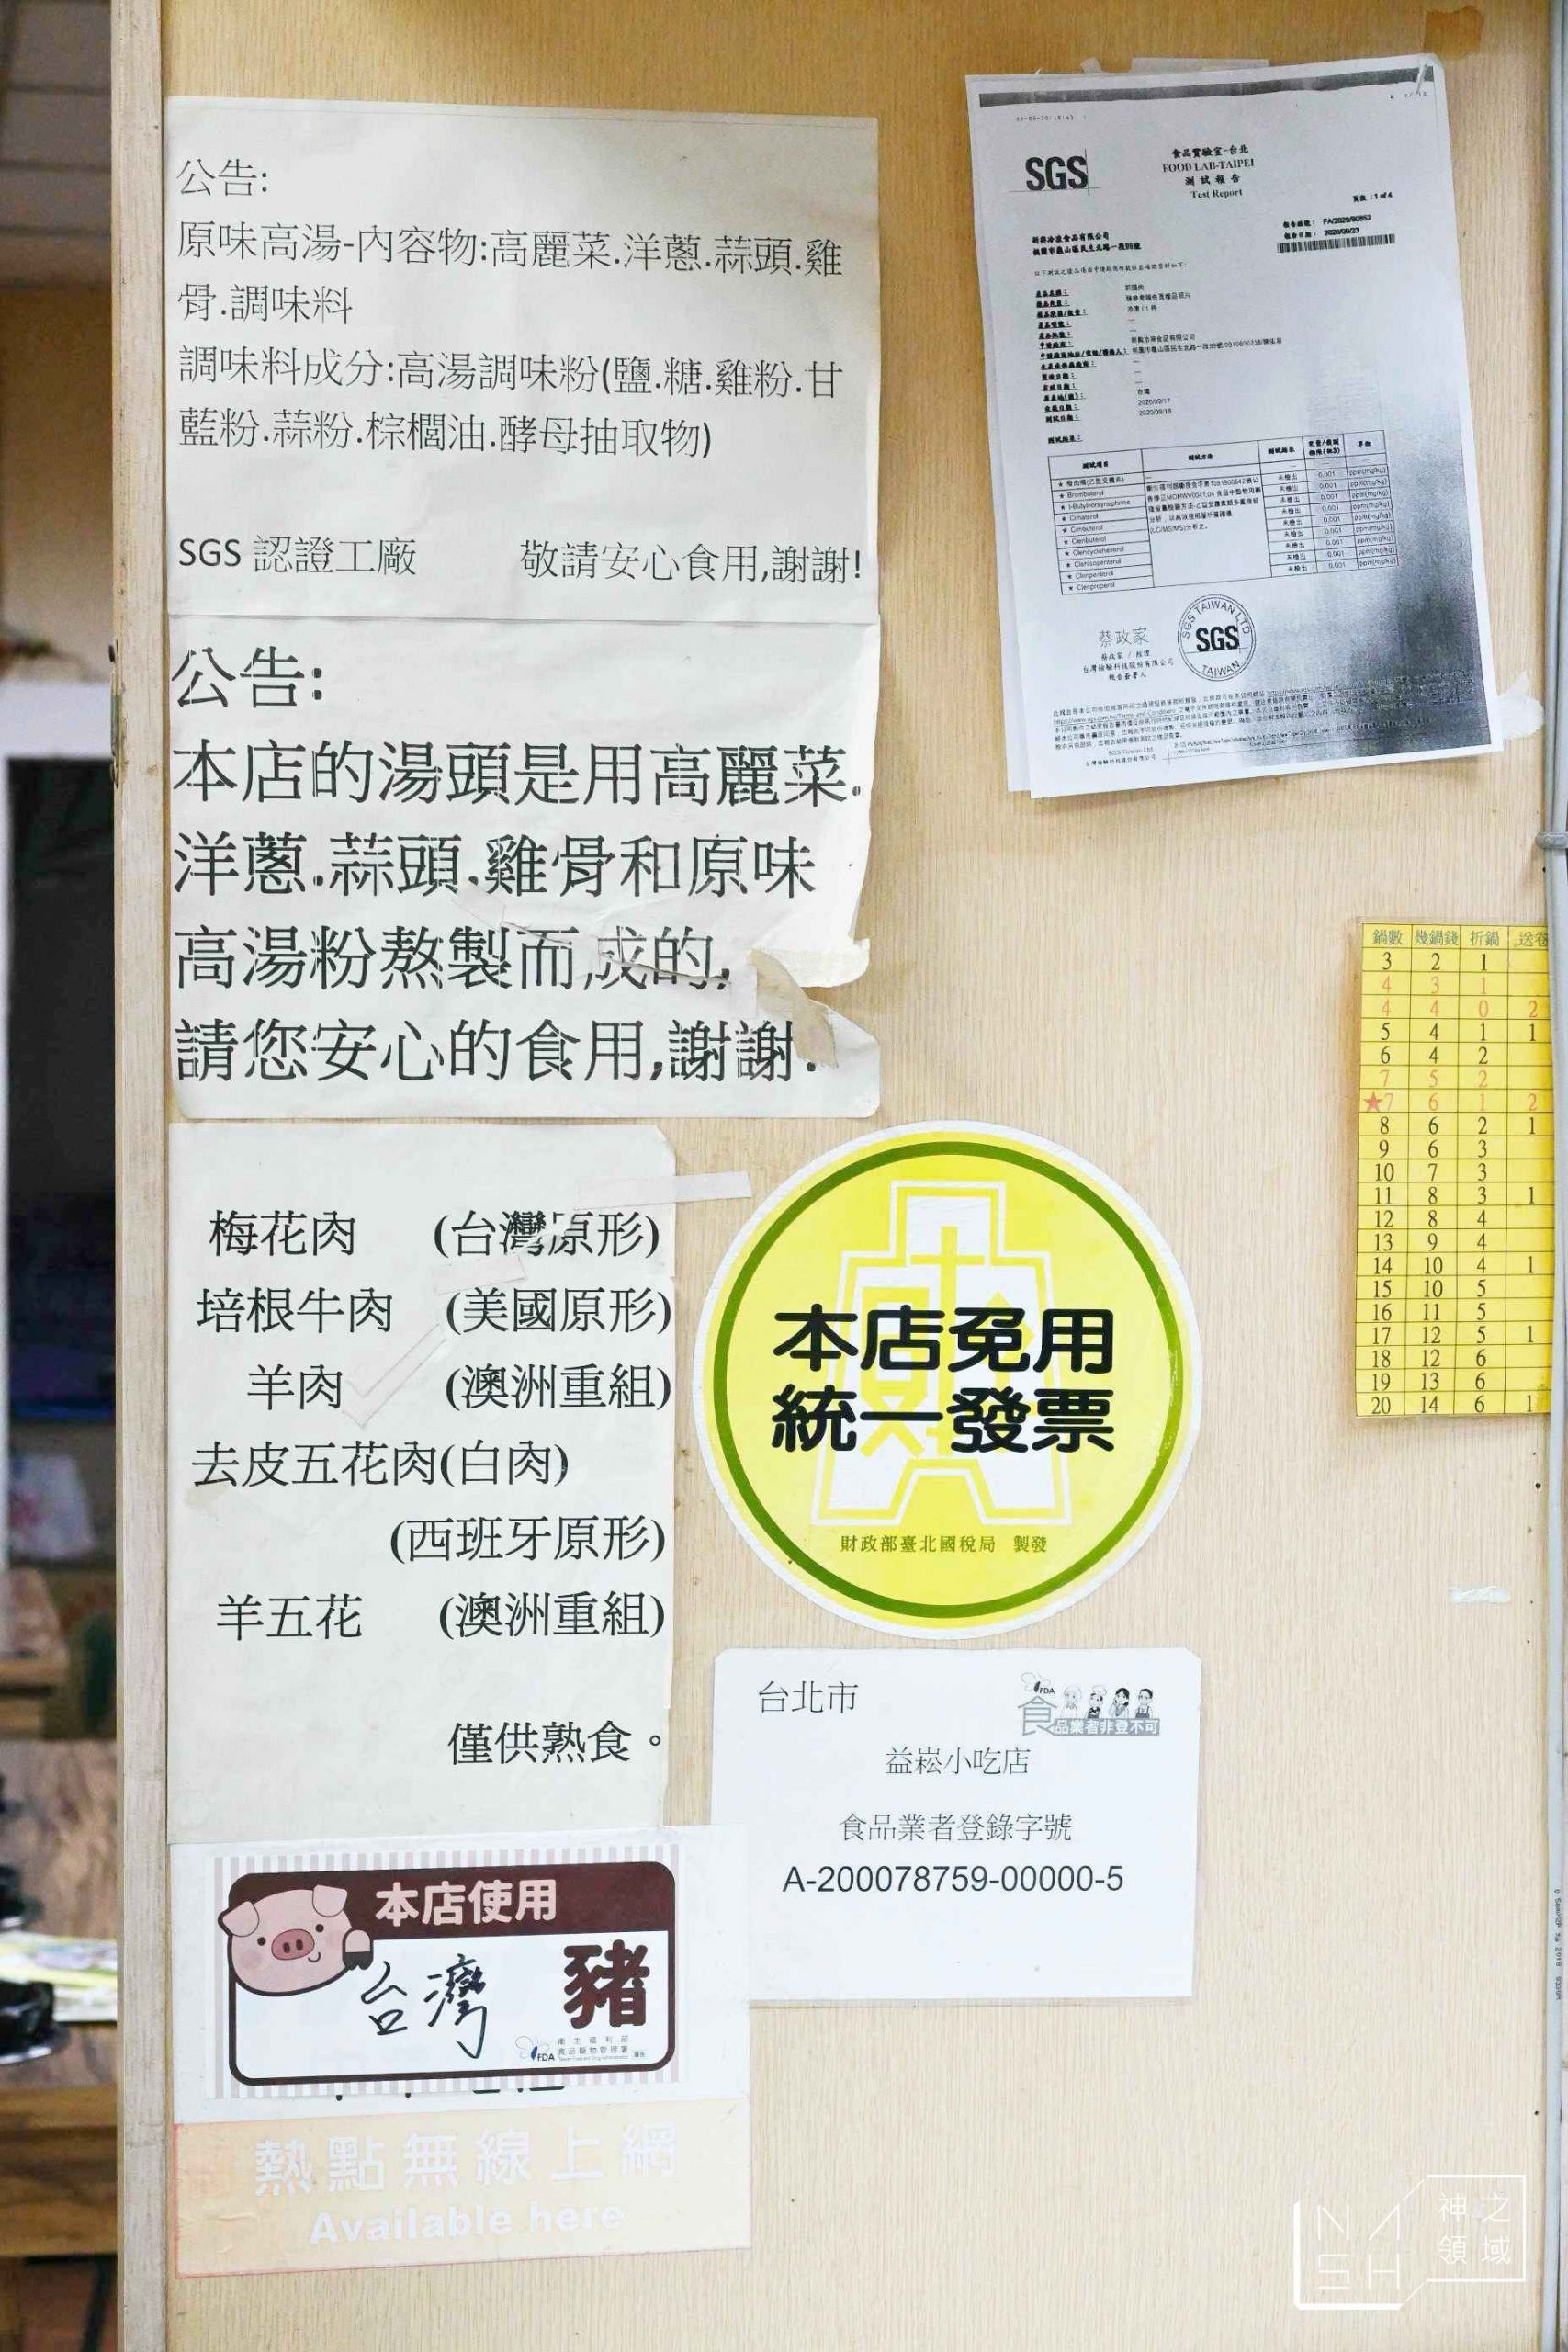 公告:
原味高湯-內容物:高麗菜.洋蔥.蒜頭.雞
骨.調味料
調味料成分:高湯調味粉(鹽.糖.雞粉.甘
藍粉.蒜粉.棕櫚油.酵母抽取物)
SGS 認證工廠 敬請安心食用,謝謝!
公告:
本店的湯頭是用高麗菜.
洋蔥.蒜頭.雞骨和原味
高湯粉熬製而成的,
請您安心的食用,謝謝!
梅花肉 (台灣原形)
培根牛肉 (美國原形)
羊肉 (澳洲重組)
去皮五花肉(白肉)
(西班牙原形)
羊五花 (澳洲重組)
僅供熟食。
本店使用
台灣 豬
衛生福利部
FDA 食品藥物管理署
熱點無線上網
Available here
SGS
食品實驗室-台北
FOOD LAB-TAIPEI
測試報告
Test Report
頁數:1 of 4
2020/09/23
2020/09/17
2020/09/18
台灣
測試項目 測試方法 測試結果 單位
★ Brombuterol
★ Cimaterol
★ Cimbuterol
★ Clenbuterol
★ Clencyclohexerol
★ Clenisopenterol
★ Clenpenterol
★ Clenproperol
蔡政家
台灣檢驗科技股份有限公司
報告簽署人
SGS TAIWAN LTD
SGS
TAIWAN
鍋數 幾鍋錢 折鍋 送卷
3 2 1
4 3 1
4 4 0 2
5 4 1 1
6 4 2
7 5 2
★7 6 1 2
8 6 2 1
9 6 3
10 7 3
11 8 3 1
12 8 4
13 9 4
14 10 4 1
15 10 5
16 11 5
17 12 5 1
18 12 6
19 13 6
20 14 6 1
本店免用
統一發票
財政部臺北國稅局 製發
台北市
FDA
食品業者非登不可
益崧小吃店
食品業者登錄字號
A-200078759-00000-5
NASH
神之
領域